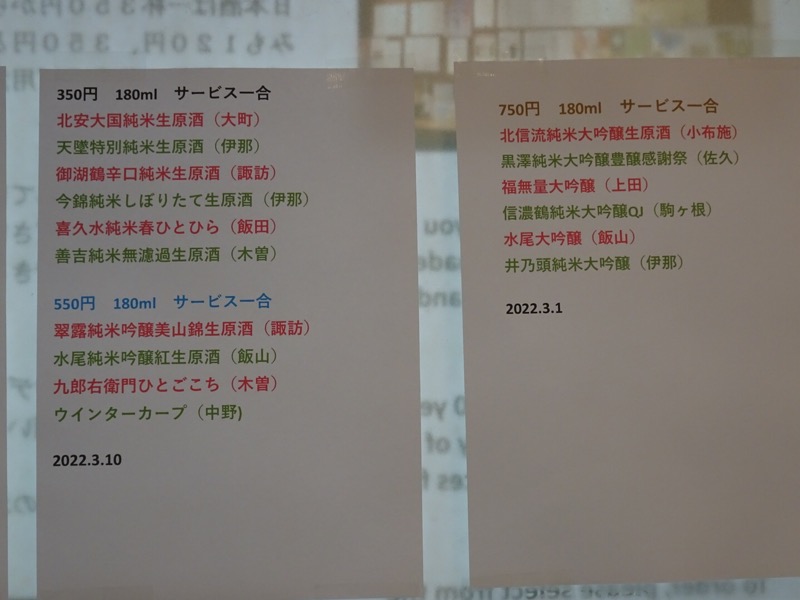 350円 180ml サービス一合
北安大国純米生原酒（大町）
天墜特別純米生原酒（伊那）
御湖鶴辛口純米生原酒（諏訪）
今錦純米しぼりたて生原酒（伊那）
喜久水純米春ひとひら（飯田）
善吉純米無濾過生原酒（木曽）
550円 180ml サービス一合
翠露純米吟醸美山錦生原酒（諏訪）
水尾純米吟醸紅生原酒（飯山）
九郎右衛門ひとごこち（木曽）
ウインターカープ（中野)
2022.3.10
750円 180ml サービス一合
北信流純米大吟醸生原酒（小布施）
黒澤純米大吟醸豊醸感謝祭（佐久）
福無量大吟醸（上田）
信濃鶴純米大吟醸QJ（駒ヶ根）
水尾大吟醸（飯山）
井乃頭純米大吟醸（伊那）
2022.3.1